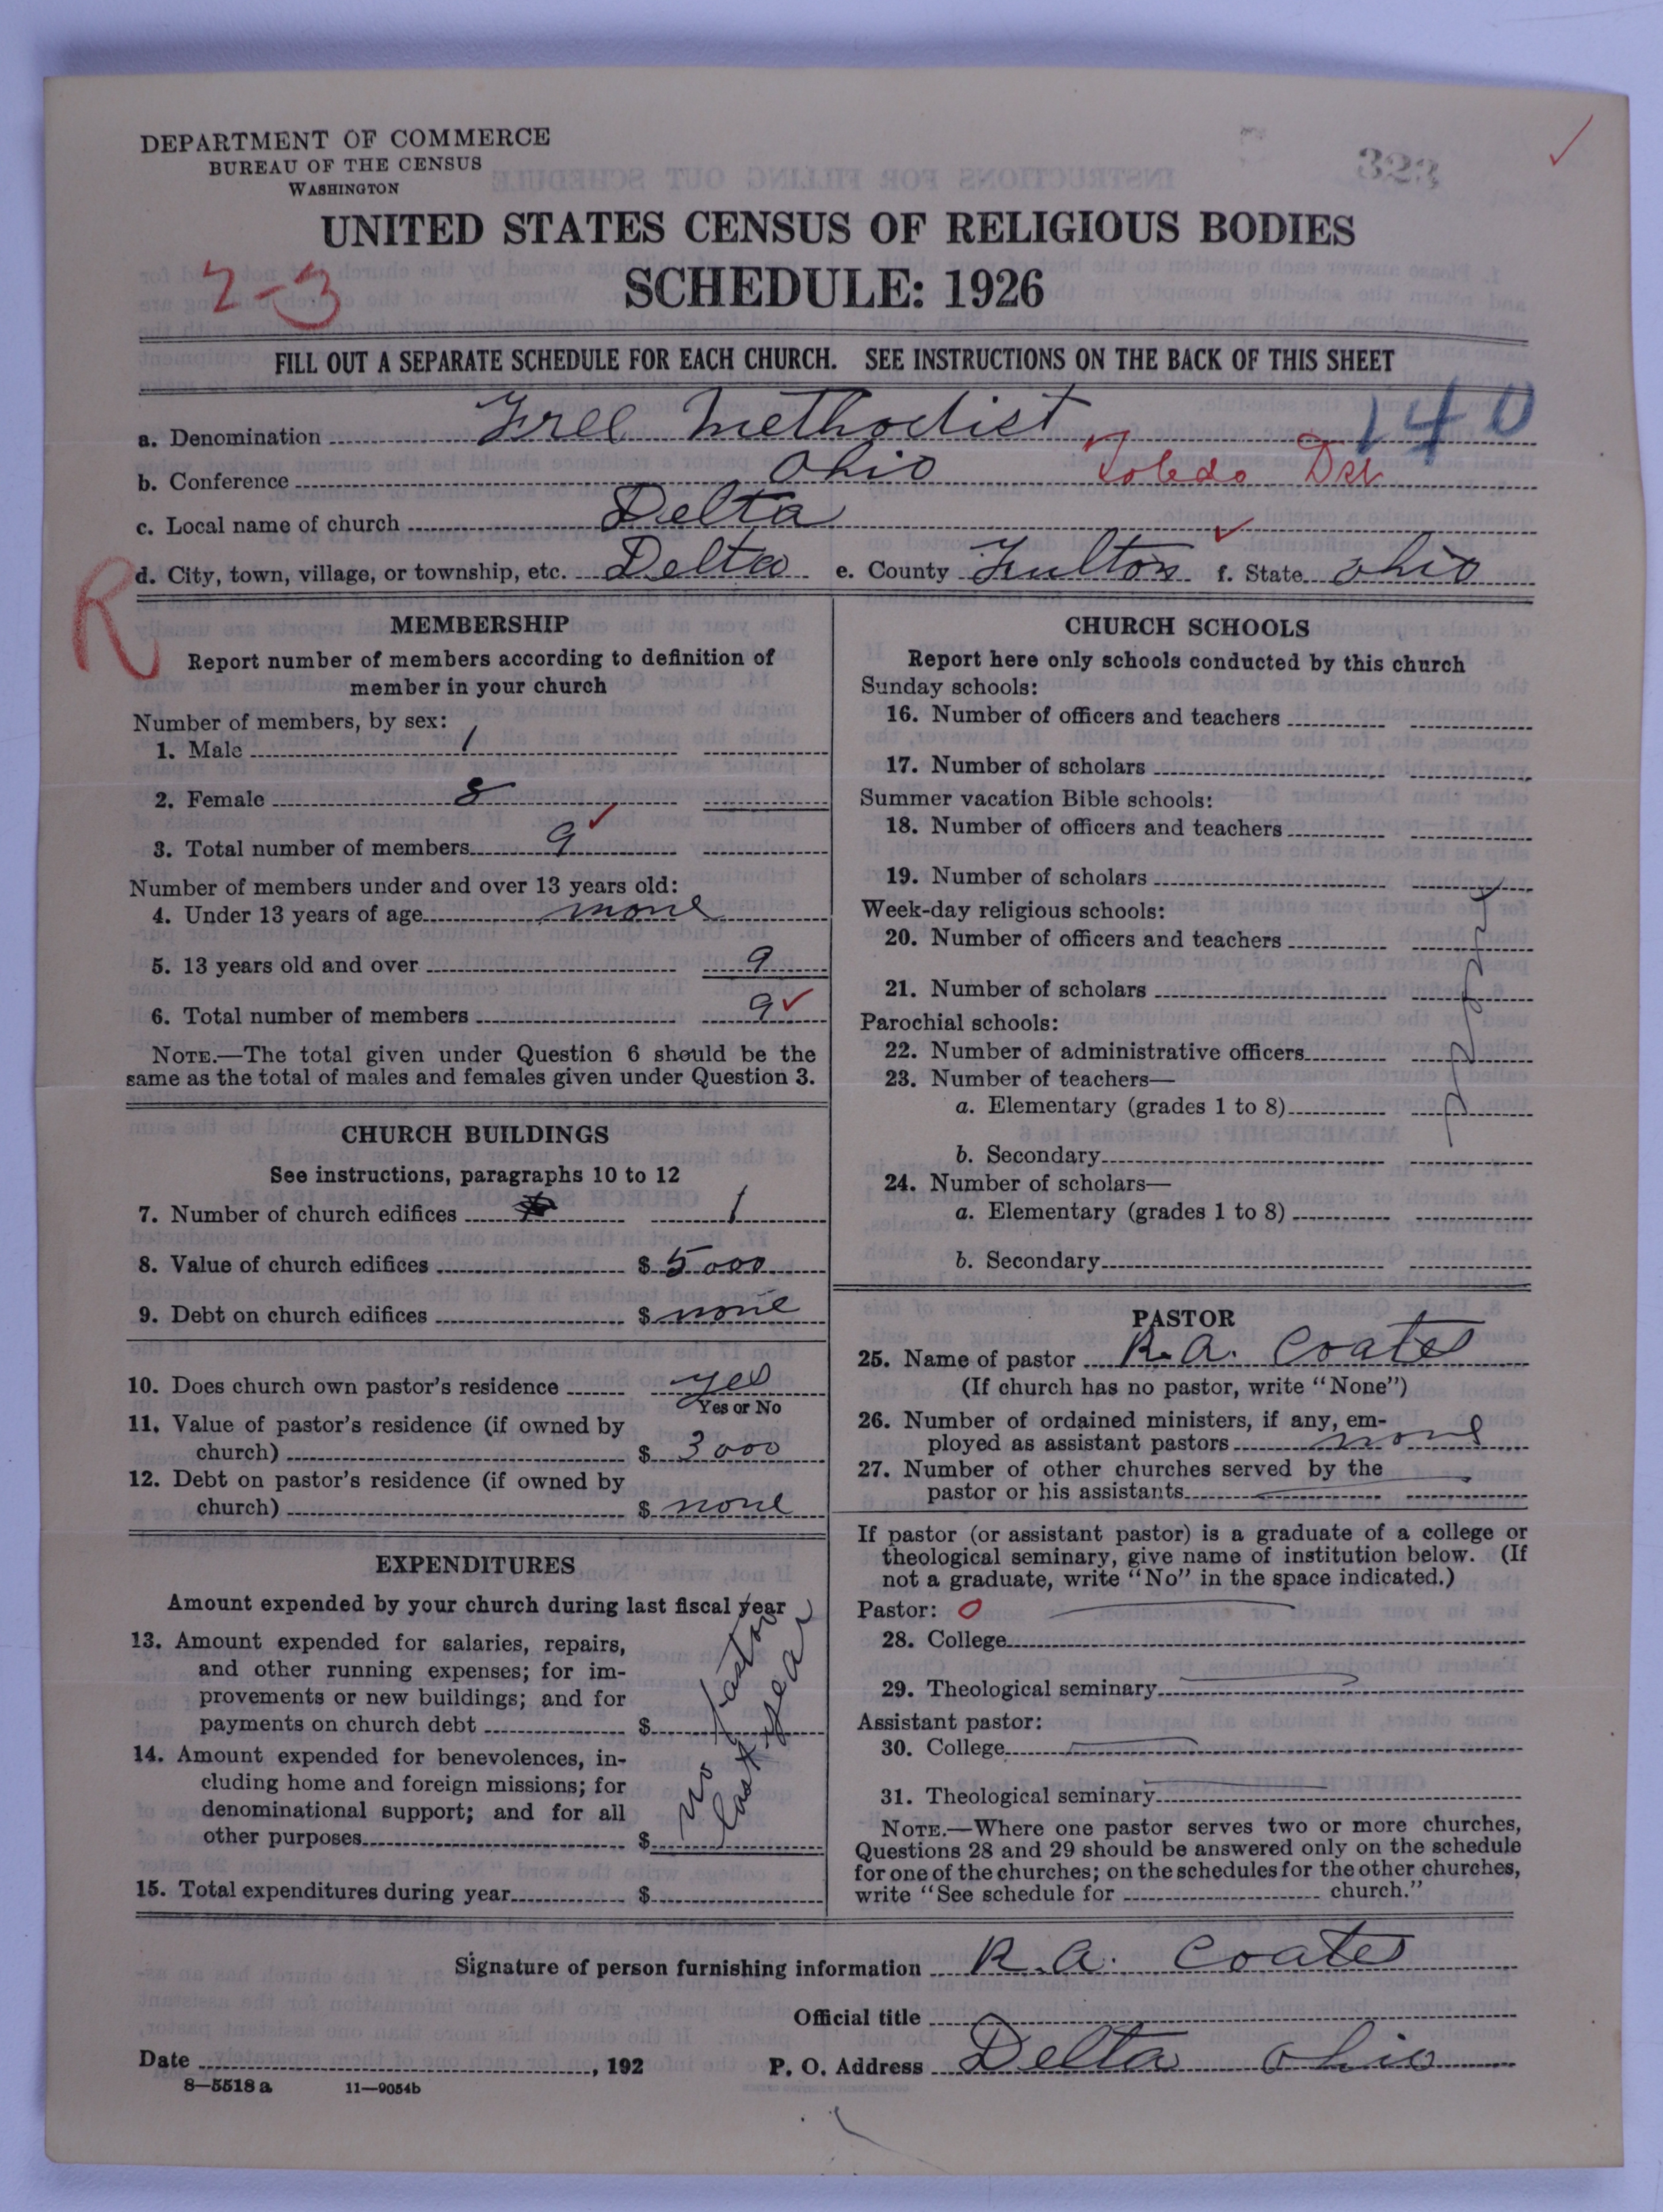 DEPARTMENT OF COMMERCE
BUREAU OF THE CENSUS
WASHINGTON
323
UNITED STATES CENSUS OF RELIGIOUS BODIES
SCHEDULE: 1926
2-3
FILL OUT A SEPARATE SCHEDULE FOR EACH CHURCH. SEE INSTRUCTIONS ON THE BACK OF THIS SHEET
a. Denomination Free Methodist 140
b. Conference Ohio Toledo Dst
c. Local name of church Delta
d. City, town, village, or township, etc. Delta e. County Fulton f. State Ohio
R
MEMBERSHIP
Report number of members according to definition of
member in your church
Number of members, by sex:
1. Male 1
2. Female 8
3. Total number of members 9
Number of members under and over 13 years old:
4. Under 13 years of age none
5. 13 years old and over 9
6. Total number of members 9
NOTE.—The total given under Question 6 should be the
same as the total of males and females given under Question 3.
CHURCH BUILDINGS
See instructions, paragraphs 10 to 12
7. Number of church edifices 1
8. Value of church edifices $ 5000
9. Debt on church edifices $ none
10. Does church own pastor's residence yes
Yes or No
11. Value of pastor's residence (if owned by
church) $ 3000
12. Debt on pastor's residence (if owned by
church) $ none
EXPENDITURES
Amount expended by your church during last fiscal year
13. Amount expended for salaries, repairs,
and other running expenses; for im-
provements or new buildings; and for
payments on church debt $
14. Amount expended for benevolences, in-
cluding home and foreign missions; for
denominational support; and for all
other purposes $
no pastor
last year
15. Total expenditures during year $
CHURCH SCHOOLS
Report here only schools conducted by this church
Sunday schools:
16. Number of officers and teachers
17. Number of scholars
Summer vacation Bible schools:
18. Number of officers and teachers
19. Number of scholars
Week-day religious schools:
20. Number of officers and teachers
21. Number of scholars
Parochial schools:
22. Number of administrative officers
23. Number of teachers—
a. Elementary (grades 1 to 8)
b. Secondary
24. Number of scholars—
a. Elementary (grades 1 to 8)
b. Secondary
PASTOR
25. Name of pastor R. A. Coates
(If church has no pastor, write "None")
26. Number of ordained ministers, if any, em-
ployed as assistant pastors none
27. Number of other churches served by the
pastor or his assistants
If pastor (or assistant pastor) is a graduate of a college or
theological seminary, give name of institution below. (If
not a graduate, write "No" in the space indicated.)
Pastor: 0
28. College
29. Theological seminary
Assistant pastor:
30. College
31. Theological seminary
NOTE.—Where one pastor serves two or more churches,
Questions 28 and 29 should be answered only on the schedule
for one of the churches; on the schedules for the other churches,
write "See schedule for church."
Signature of person furnishing information R. A. Coates
Official title
Date , 192 P. O. Address Delta Ohio
8—5518 a 11—9054b